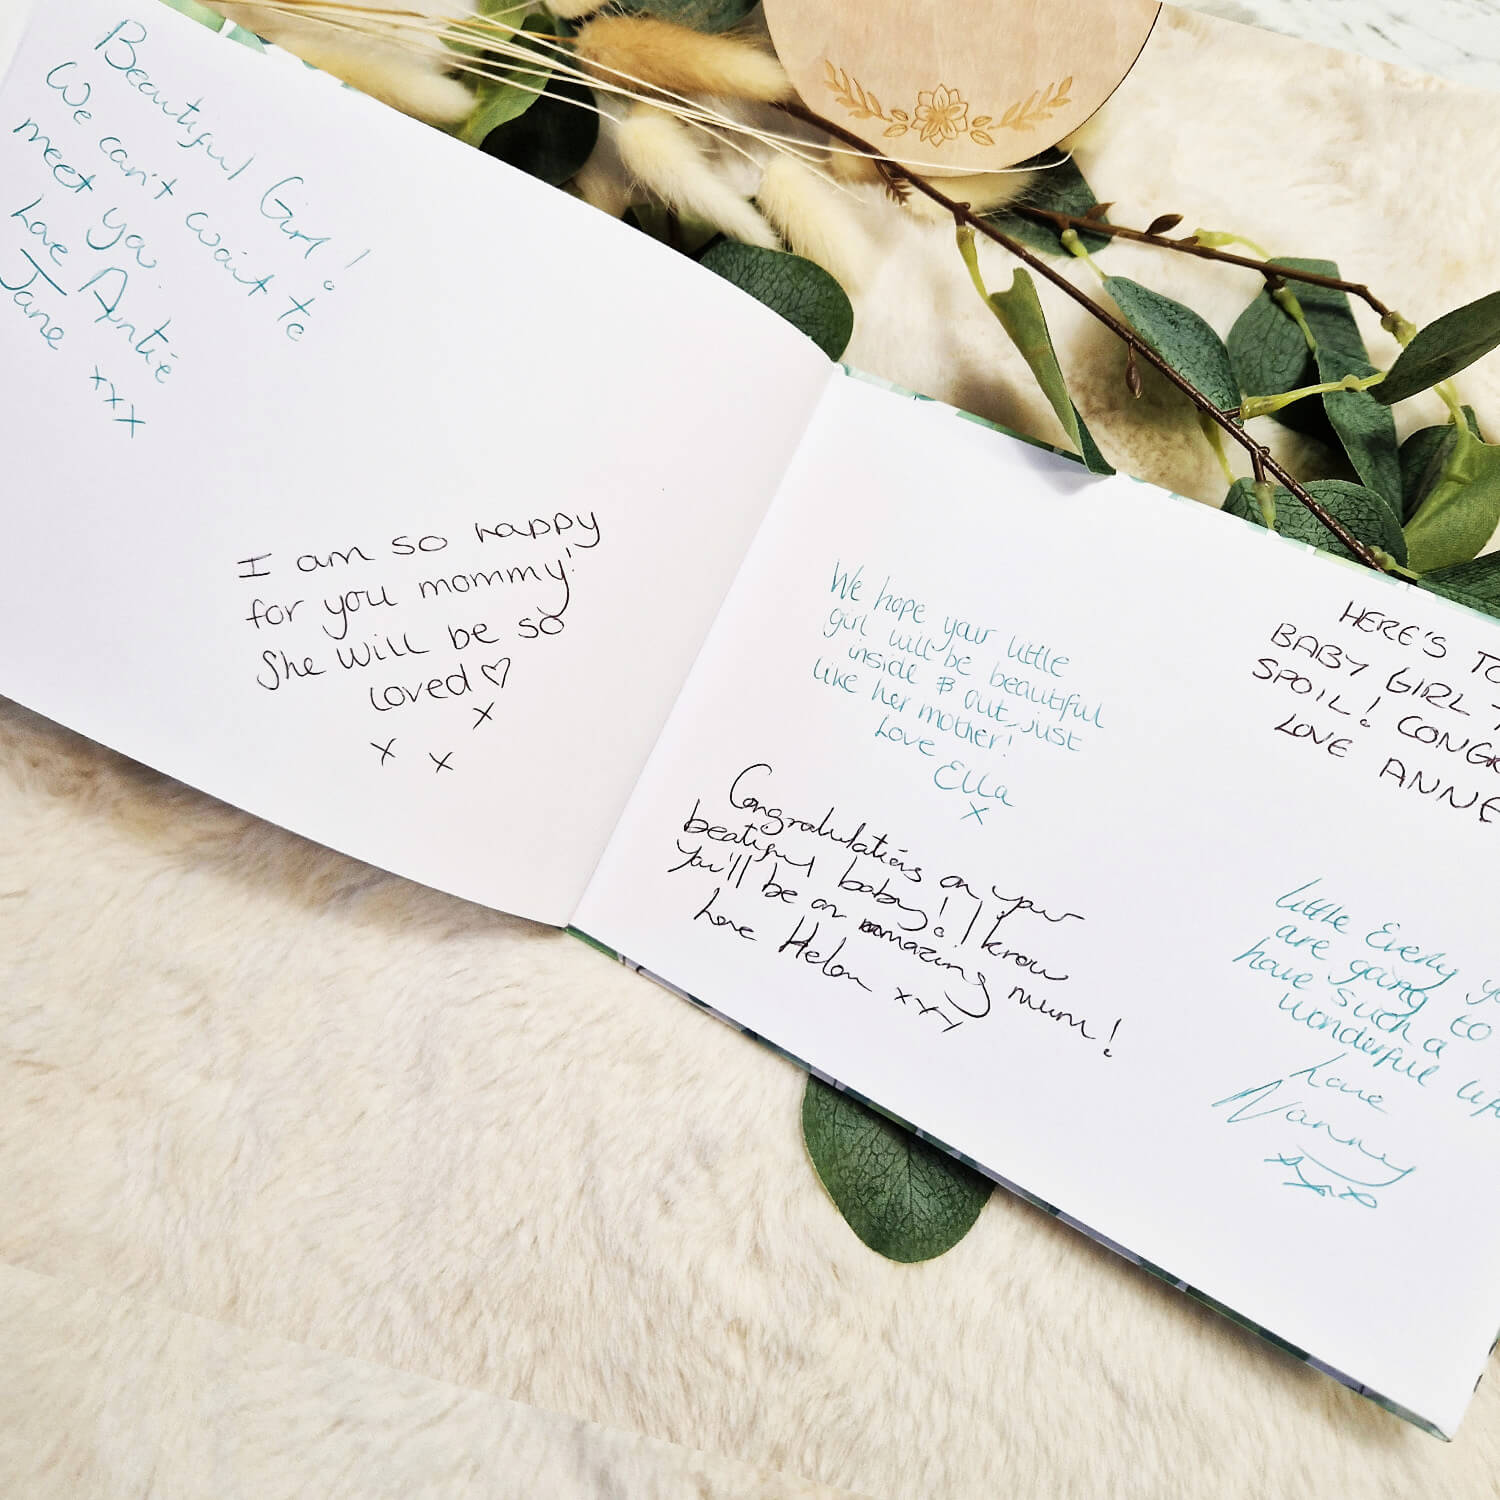 Beautiful Girl!
We can't wait to
meet you.
Love Auntie
Jane xxx
I am so happy
for you mommy!
She will be so
loved ♡
x
x x
We hope your little
girl will be beautiful
inside & out, just
like her mother!
Love Ella
x
Congratulations on your
beatiful baby! I know
you'll be an amazing mum!
Love Helen xxx
HERE'S TO
BABY GIRL
SPOIL! CONGR
LOVE ANNE
little Everly
are going to
have such a
wonderful
Love
Nanny